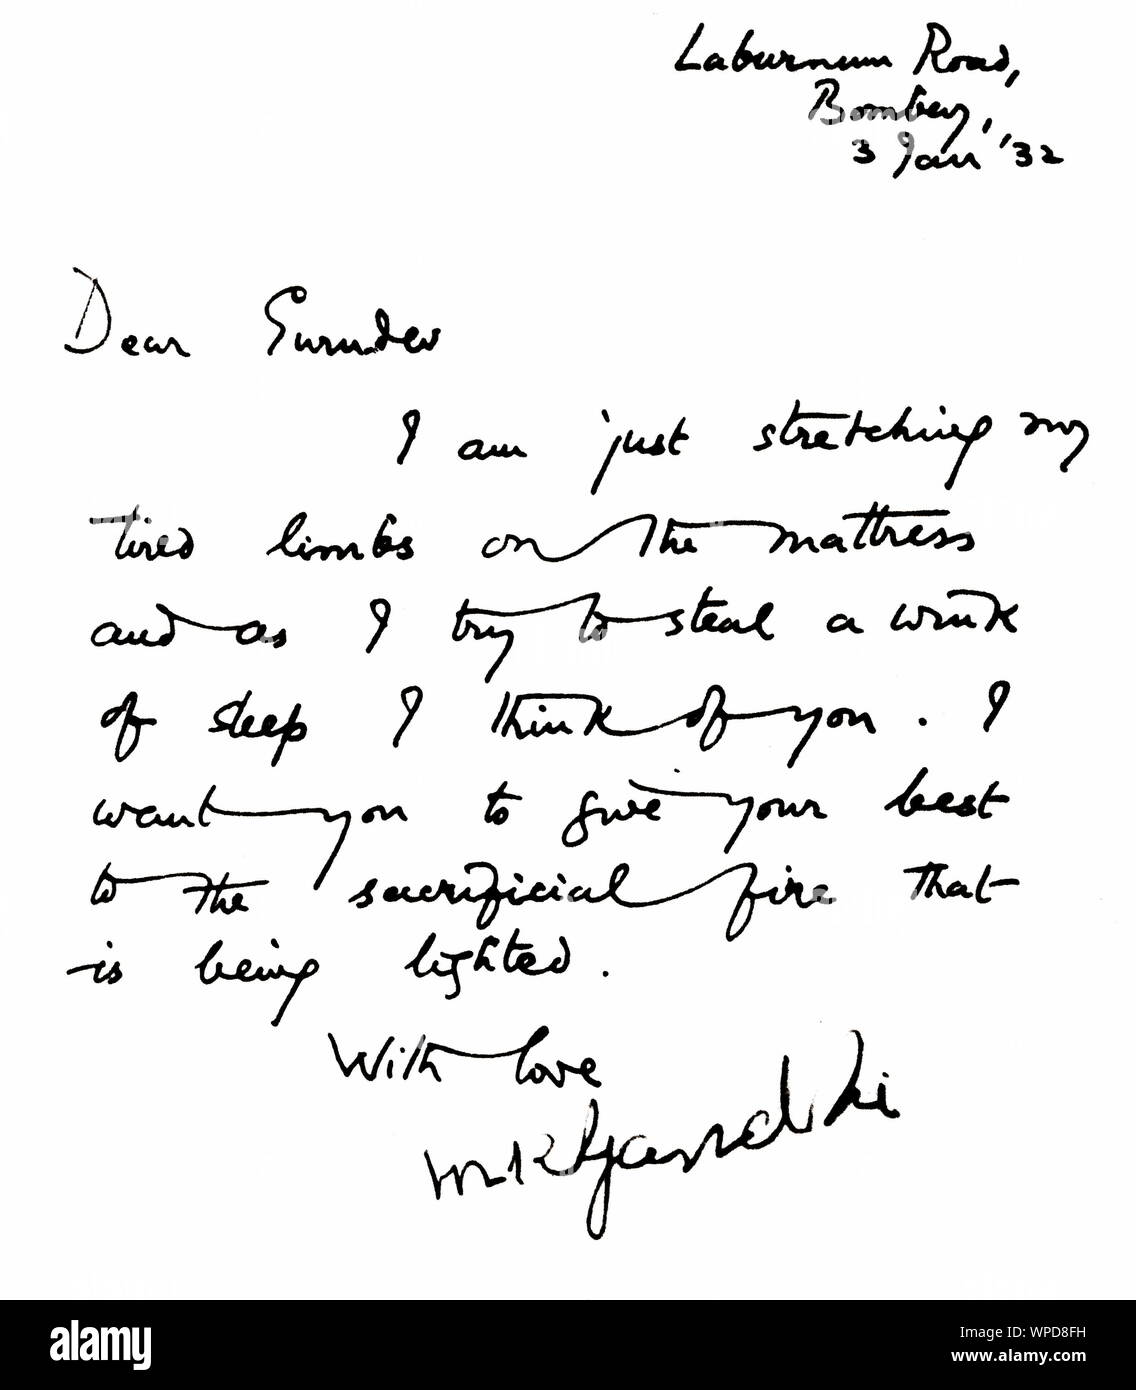 Laburnum Road,
Bombay,
3 Jan '32
Dear Gurudev
I am just stretching my
tired limbs on the mattress
and as I try to steal a wink
of sleep I think of you. I
want you to give your best
to the sacrificial fire that
is being lighted.
With love
MKGandhi
alamy
Image ID: WPD8FH
www.alamy.com